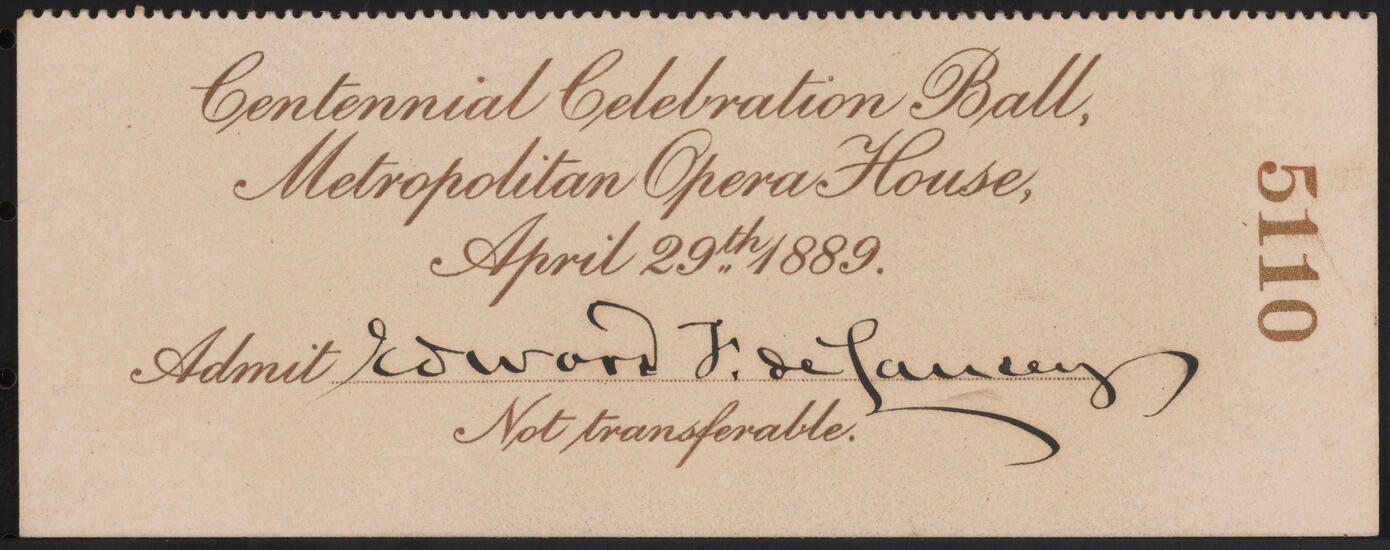 Centennial Celebration Ball,
Metropolitan Opera House,
April 29th 1889.
Admit Edward F. de Lancey
Not transferable.
5110